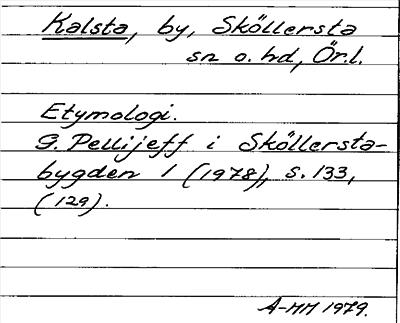 Kalsta, by, Sköllersta
sn o. hd, Ör.l.
Etymologi.
G. Pellijeff i Sköllersta-
bygden 1 (1978), s. 133,
(129).
A-MM 1979.